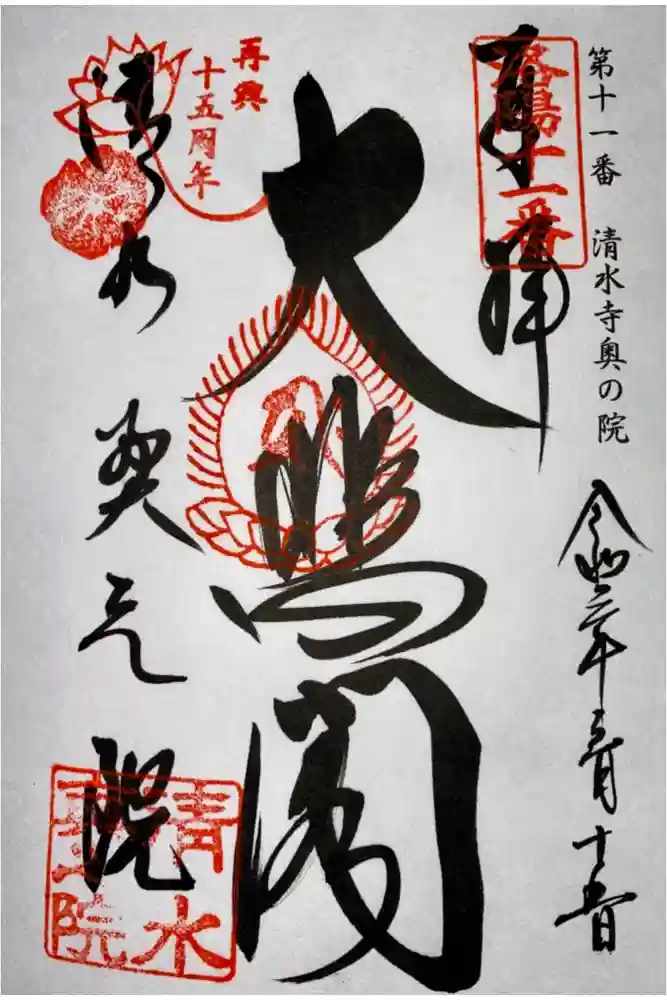 第十一番　清水寺奥の院
令和二年三月十五日
奉拝
洛陽十一番
大悲閣
再興
十五周年
清水奥之院
清水
奥之院